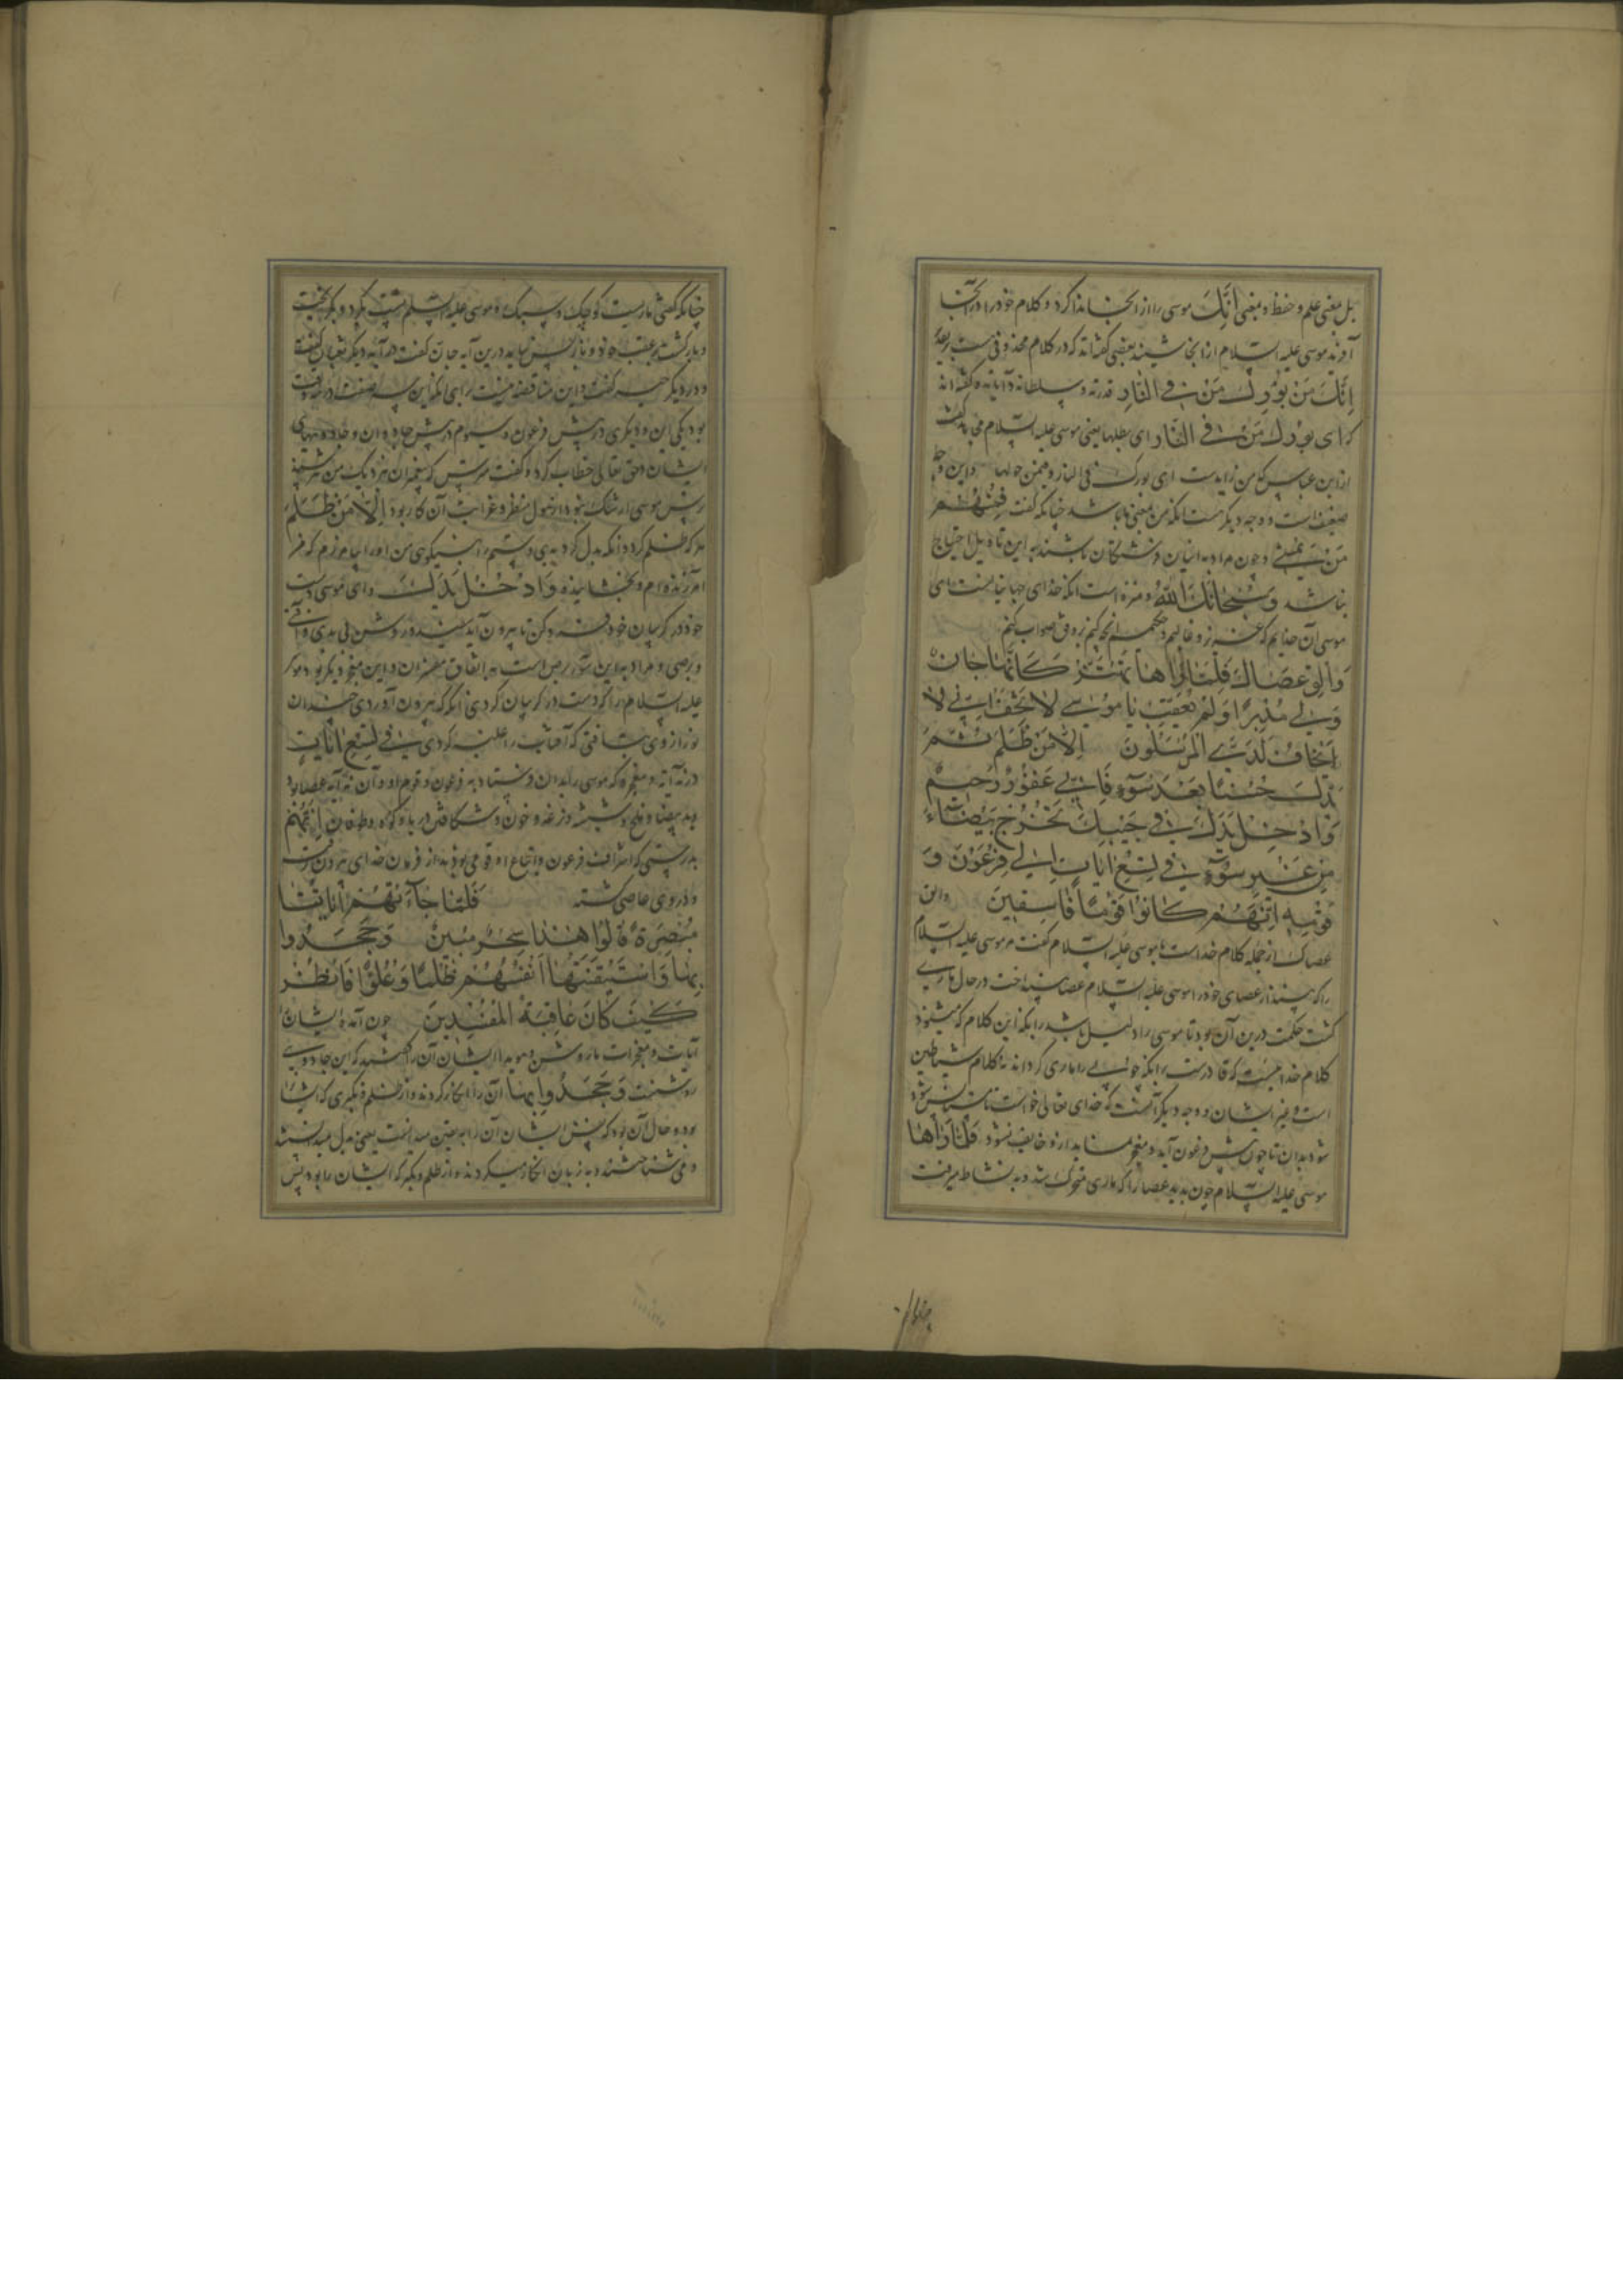 بل بمعنی علم و حفظ و بمعنی أنّك موسی را از آنجا ندا کرد و کلام خود را در آنجا
آفرید موسی علیه السلام از آنجا شنید بعضی گفته‌اند که در کلام محذوفی هست
إنّك من بورك من في النار قدرته و سلطانه و آیاته و گفته‌اند
که ای بورك من في النار ای یطلبها یعنی موسی علیه السلام
از ابن عباس که من زایدست ای بورك في النار و فیمن حولها و این وجه
ضعیف است و وجه دیگر هست آنکه من بمعنی ما باشد چنانکه گفت فمنهم
من يمشي و چون مراد به اینان فرشتگان باشند به این تاویل احتیاج
نباشد وسبحان الله و منزه است آنکه خدای جهانیانست ای
موسی آن خدایم که عزیز و غالبم و حکیمم آنچه کنم بر وفق صواب کنم
وألق عصاك فلما رآها تهتز كأنها جان
ولى مدبرا ولم يعقب يا موسى لا تخف إني لا
يخاف لدي المرسلون إلا من ظلم ثم
بدل حسنا بعد سوء فإني غفور رحيم
وأدخل يدك في جيبك تخرج بيضاء
من غير سوء في تسع آيات إلى فرعون و
قومه إنهم كانوا قوما فاسقين وألق
عصاك از جمله کلام خداست با موسی علیه السلام گفت مر موسی علیه السلام
را که بینداز عصای خود را موسی علیه السلام عصا بینداخت در حال ماری
گشت حکمت درین آن بود تا موسی را دلیل باشد برآنکه این کلام که میشنود
کلام خدا هست که قادرست برآنکه چوبی را ماری گرداند نه کلام شیاطین
است و غیر ایشان و وجه دیگر آنست که خدای تعالی خواست تا مستأنس شود
شود بدان تا چون پیش فرعون آید و معجز بنماید ازو خایف نشود فلما رآها
موسی علیه السلام چون بدید عصا را که ماری متحرک شد و به نشاط میرفت
چنانکه گفتی ماریست کوچک و سبک و موسی علیه السلام پشت بکرد و بگریخت
و باز گشت بر عقب خود و باز پس نیامد درین آیه جان گفت در آیه دیگر ثعبان گفت
و در دیگر حیه گفت و این مناقضه نیست برای آنکه این سه صفت در سه وقت
بود یکی این و دیگری در پیش فرعون و سیوم در پیش جادوان و جادوئیهای
ایشان و حق تعالی خطاب کرد و گفت مترس که پیغمبران نزدیک من نترسند
ترس موسی از شک نبود از هول منظر و غرابت آن کار بود إلا من ظلم
مگر که ظلم کرد و آنکه بدل کرد بدی و ستم را به نیکویی من او را بیامرزم که من
آمرزنده‌ام و بخشاینده وأدخل يدك و ای موسی دست
خود در گریبان خود کن تا بیرون آید سفید و روشن بی بدی و آفتی
و برصی و مراد به این سوء برص است به اتفاق مفسران و این معجز دیگر بود موسی
علیه السلام را که دست در گریبان کردی آنگه که بیرون آوردی چندان
نور از وی بتافتی که آفتاب را غلبه کردی في تسع آيات
در نه آیه و معجزه که موسی را بدان فرستاد به فرعون و قوم او و آن نه آیه عصا بود
و ید بیضا و ملخ و شپشه و ضفدع و خون و شکافتن دریا و کوه و طوفان إنهم
بدرستی که اشراف فرعون و اتباع او قومی بودند از فرمان خدای بیرون رفته
و در وی عاصی گشته فلما جاءتهم آياتنا
مبصرة قالوا هذا سحر مبين وجحدوا
بها واستيقنتها أنفسهم ظلما وعلوا فانظر
كيف كان عاقبة المفسدين چون آمد به ایشان
آیات و معجزات ما روشن و هویدا ایشان آن را گفتند که این جادویی
روشنست وجحدوا بها آن را انکار کردند و از ظلم و تکبری که ایشان را
بود و حال آن بود که نفس ایشان آن را به یقین میدانست یعنی بدل میدانستند
و می‌شناختند و به زبان انکار میکردند و از ظلم و تکبر که ایشان را بود پس